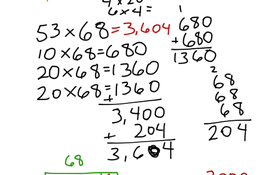 6×4=
53×68=3,604
10×68=680
20×68=1360
20×68=+1360
3,400
+ 204
3,604
1
680
+680
1360
2
68
68
68
204
68